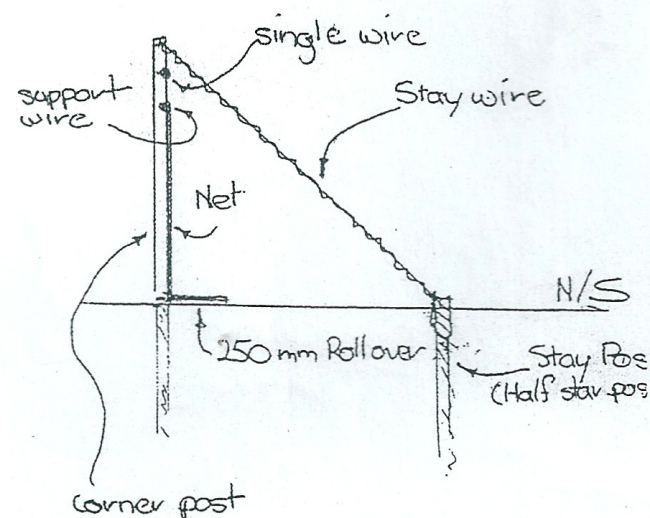 single wire
support
wire
Stay wire
Net
N/S
250 mm Rollover
Stay Pos
(Half star pos
corner post